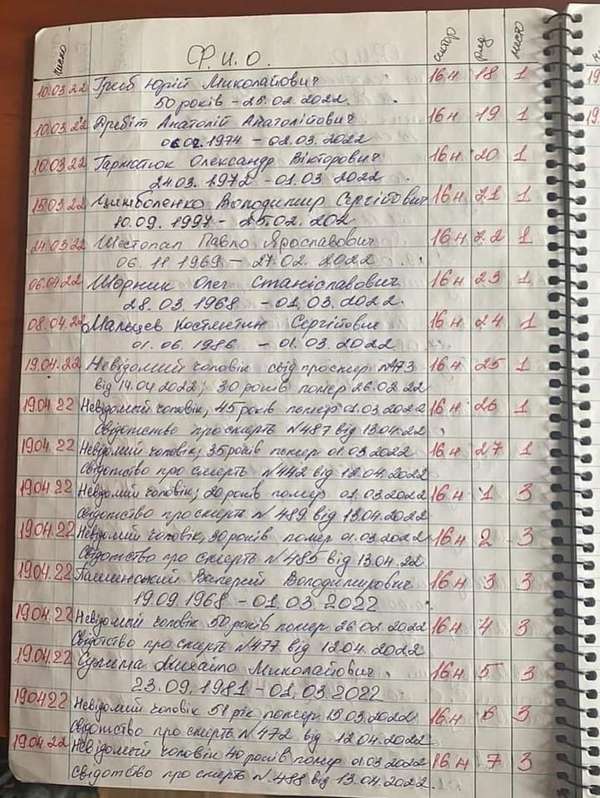 число Ф.И.О. сектор ряд место
10.03.22 Гриб Юрій Миколайович 16н 18 1
50 років - 25.02.2022
10.03.22 Анатолій Анатолійович 16н 19 1
1974 - 02.03.2022
10.03.22 Гарматюк Олександр Вікторович 16н 20 1
24.03.1972 - 01.03.2022
Володимир Сергійович 16н 21 1
10.09.1997 - 25.02.202
24.03.22 Шестопал Павло Ярославович 16н 22 1
06.11.1969 - 27.02.2022
06.04.22 Шорник Олег Станіславович 16н 23 1
28.03.1968 - 01.03.2022
08.04.22 Малышев Сергійович 16н 24 1
01.06.1986 - 01.03.2022
19.04.22 Невідомий чоловік свід про смерт 16н 25 1
від 14.04.2022; 30 років помер 26.02.22
19.04.22 Невідомий чоловік, 45 років помер 01.03.2022 16н 26 1
Свідотство про смерть N487 від 13.04.22
19.04.22 Невідомий чоловік, 35 років помер 01.03.2022 16н 27 1
свідотство про смерть N442 від 12.04.2022
19.04.22 Невідомий чоловік, помер 01.03.2022 16н 1 3
свідотство про смерть N 489 від 13.04.2022
19.04.22 Невідомий чоловік, помер 01.03.2022 16н 2 3
Свідотство про смерть N485 від 13.04.22
19.04.22 Валерій Володимирович 16н 3 3
19.09.1968 - 01.03.2022
19.04.22 Невідомий чоловік 50 років помер 26.02.2022 16н 4 3
про смерть N477 від 12.04.2022
19.04.22 Сулима Михайло Миколайович 16н 5 3
23.09.1981 - 01.03.2022
19.04.22 Невідомий чоловік 51 рік помер 15.03.2022 16н 6 3
свідотство про смерть N472 від 12.04.2022
19.04.22 Невідомий чоловік 40 років помер 01.03.2022 16н 7 3
свідотство про смерть N488 від 13.04.2022